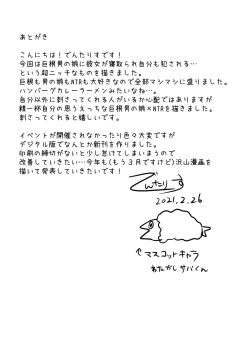 あとがき
こんにちは！でんたりすです！
今回は巨根男の娘に彼女が寝取られ自分も犯される…
という超ニッチなものを描きました。
巨根も男の娘もNTRも大好きなので全部マシマシに盛りました。
ハンバーグカレーラーメンみたいなね…。
自分以外に刺さってくれる人がいるか心配ではありますが
精一杯自分の思うえっちな巨根男の娘×NTRを描きました。
刺さってくれると嬉しいです。
イベントが開催されなかったり色々大変ですが
デジタル版でなんとか新刊を作りました。
印刷の締切がないと少し怠けてしまいますので
改善していきたい…今年も(もう３月ですけど)沢山漫画を
描いて発表していきたいです！
でんたりす
2021.2.26
↑マスコットキャラ
わたがしサバくん